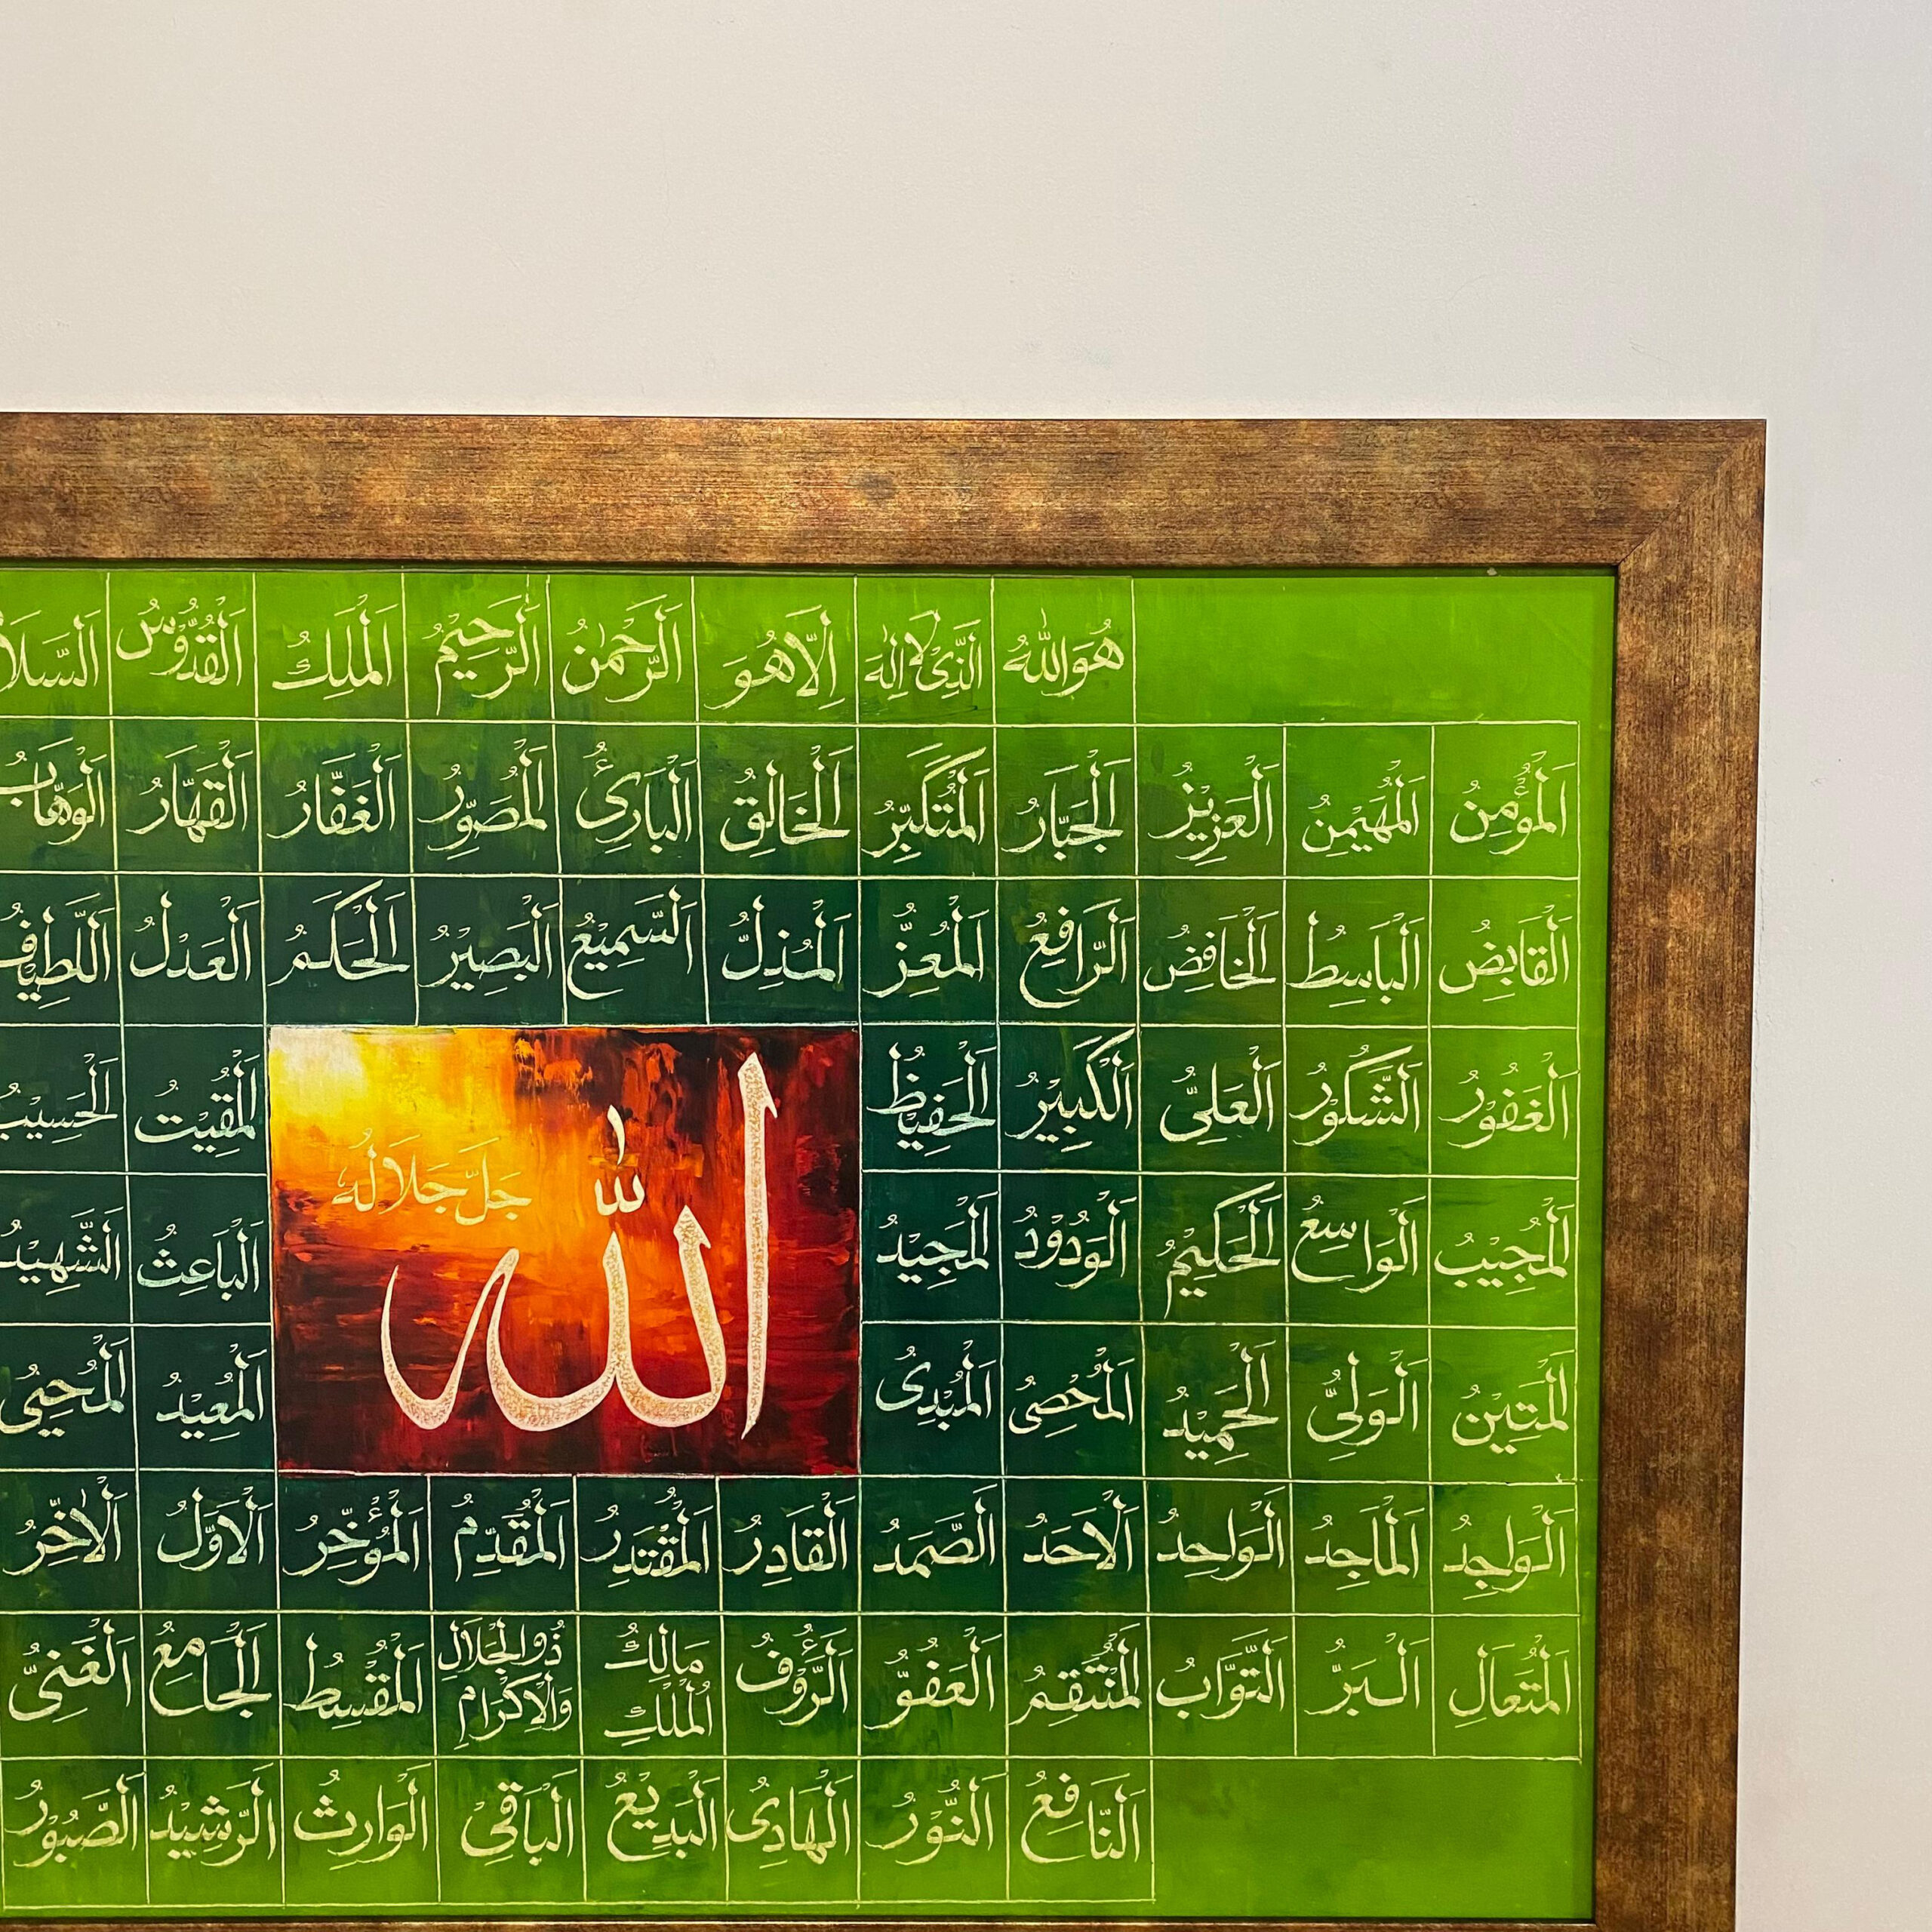 هُوَاللهُ الَّذِىْ لَا اِلٰهَ اِلَّاهُوَ اَلرَّحْمٰنُ اَلرَّحِيْمُ اَلْمَلِكُ اَلْقُدُّوْسُ
اَلْمُؤْمِنُ اَلْمُهَيْمِنُ اَلْعَزِيْزُ اَلْجَبَّارُ اَلْمُتَكَبِّرُ اَلْخَالِقُ اَلْبَارِئُ اَلْمُصَوِّرُ اَلْغَفَّارُ اَلْقَهَّارُ اَلْوَهَّابُ
اَلْقَابِضُ اَلْبَاسِطُ اَلْخَافِضُ اَلرَّافِعُ اَلْمُعِزُّ اَلْمُذِلُّ اَلسَّمِيْعُ اَلْبَصِيْرُ اَلْحَكَمُ اَلْعَدْلُ اَللَّطِيْفُ
اَلْغَفُوْرُ اَلشَّكُوْرُ اَلْعَلِىُّ اَلْكَبِيْرُ اَلْحَفِيْظُ اَلْمُقِيْتُ اَلْحَسِيْبُ
اَلْمُجِيْبُ اَلْوَاسِعُ اَلْحَكِيْمُ اَلْوَدُوْدُ اَلْمَجِيْدُ اَلْبَاعِثُ اَلشَّهِيْدُ
الله جَلَّ جَلَالُهٗ
اَلْمَتِيْنُ اَلْوَلِىُّ اَلْحَمِيْدُ اَلْمُحْصِىُ اَلْمُبْدِىُ اَلْمُعِيْدُ اَلْمُحْيِىُ
اَلْوَاجِدُ اَلْمَاجِدُ اَلْوَاحِدُ اَلْاَحَدُ اَلصَّمَدُ اَلْقَادِرُ اَلْمُقْتَدِرُ اَلْمُقَدِّمُ اَلْمُؤَخِّرُ اَلْاَوَّلُ اَلْاٰخِرُ
اَلْمُتَعَالِ اَلْبَرُّ اَلتَّوَّابُ اَلْمُنْتَقِمُ اَلْعَفُوُّ اَلرَّؤُفُ مَالِكُ الْمُلْكِ ذُوالْجَلَالِ وَالْاِكْرَامِ اَلْمُقْسِطُ اَلْجَامِعُ اَلْغَنِىُّ
اَلنَّافِعُ اَلنُّوْرُ اَلْهَادِىُ اَلْبَدِيْعُ اَلْبَاقِىْ اَلْوَارِثُ اَلرَّشِيْدُ اَلصَّبُوْرُ